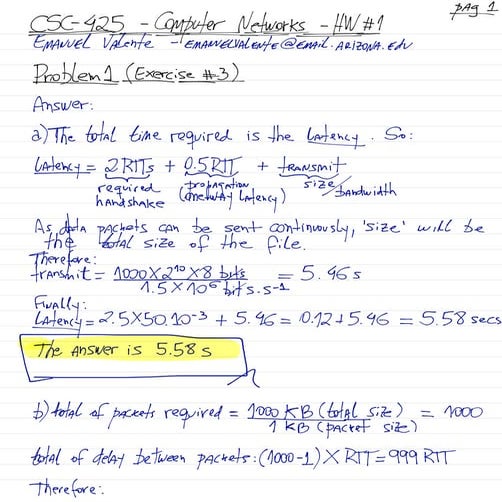 pag 1
CSC-425 - Computer Networks - HW#1
Emanuel Valente - emanuelvalente@email.arizona.edu
Problem 1 (Exercise #3)
Answer:
a) The total time required is the latency. So:
Latency = 2RTTs + 0.5RTT + transmit
required handshake (propagation oneway latency) size/bandwidth
As data packets can be sent continuously, 'size' will be
the total size of the file.
Therefore:
transmit = 1000 X 2^10 X 8 bits / 1.5 X 10^6 bits.s^-1 = 5.46s
Finally:
Latency = 2.5X50.10^-3 + 5.46 = 0.12+5.46 = 5.58 secs
The answer is 5.58 s
b) total of packets required = 1000 KB (total size) / 1 KB (packet size) = 1000
total of delay between packets: (1000-1) X RTT = 999 RTT
Therefore: